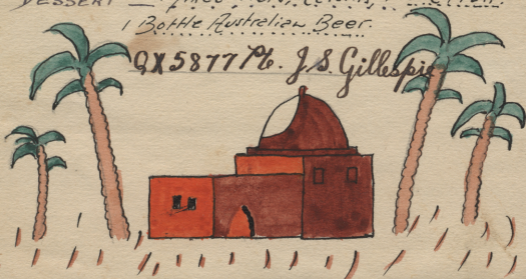 DESSERT —
1 Bottle Australian Beer.
QX5877 Pte. J.S. Gillespie